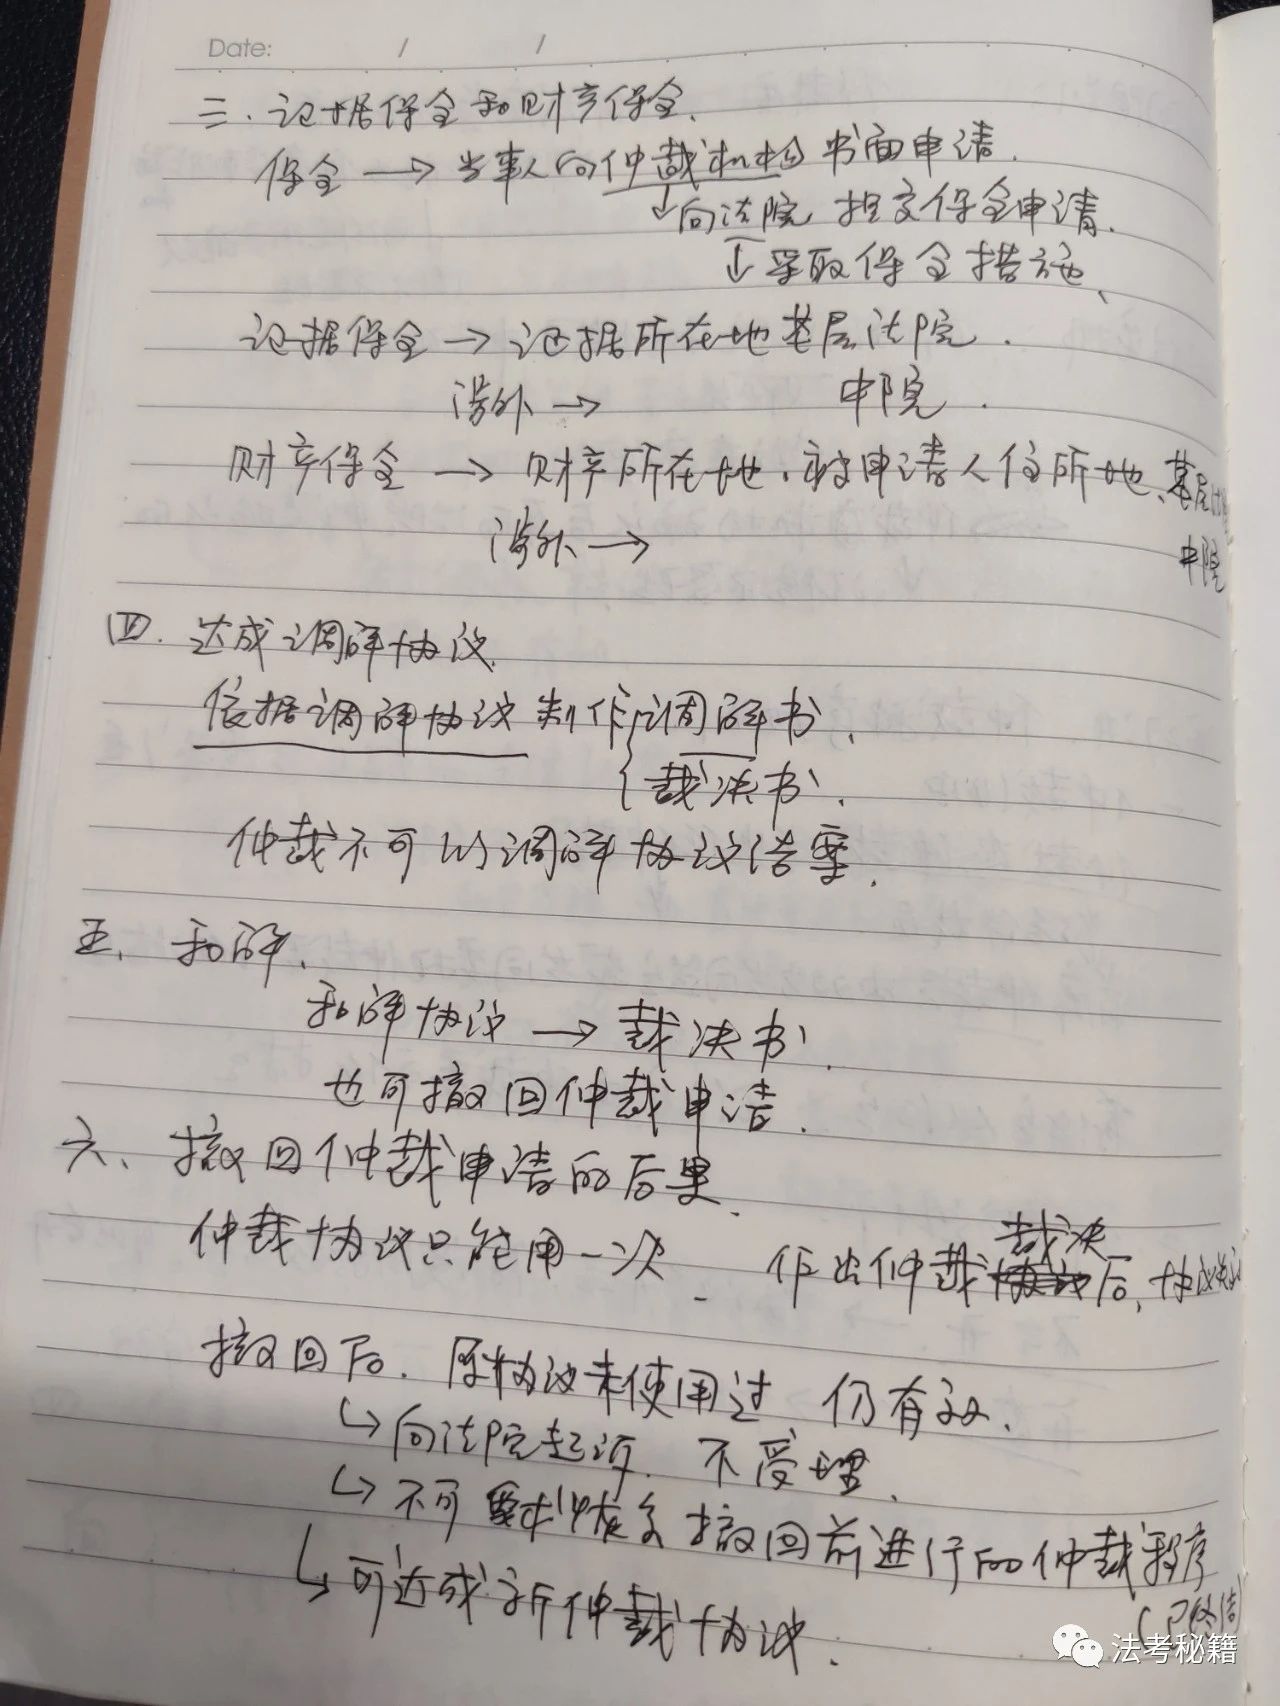 Date: / /
三. 证据保全和财产保全.
保全 → 当事人向仲裁机构书面申请.
↓向法院 提交保全申请.
↓采取保全措施、
证据保全 → 证据所在地基层法院.
涉外 → 中院.
财产保全 → 财产所在地.被申请人住所地、基层
涉外 → 中院
四. 达成调解协议.
依据调解协议制作{调解书、
裁决书.
仲裁不可以调解协议结案.
五、和解、
和解协议 → 裁决书.
也可撤回仲裁申请.
六、撤回仲裁申请的后果.
仲裁协议只能用一次. 作出仲裁裁决后,协议
撤回后.原协议未使用过,仍有效.
↳向法院起诉.不受理.
↳不可要求恢复撤回前进行的仲裁程序
(已终结)
↳可达成新仲裁协议.
法考秘籍